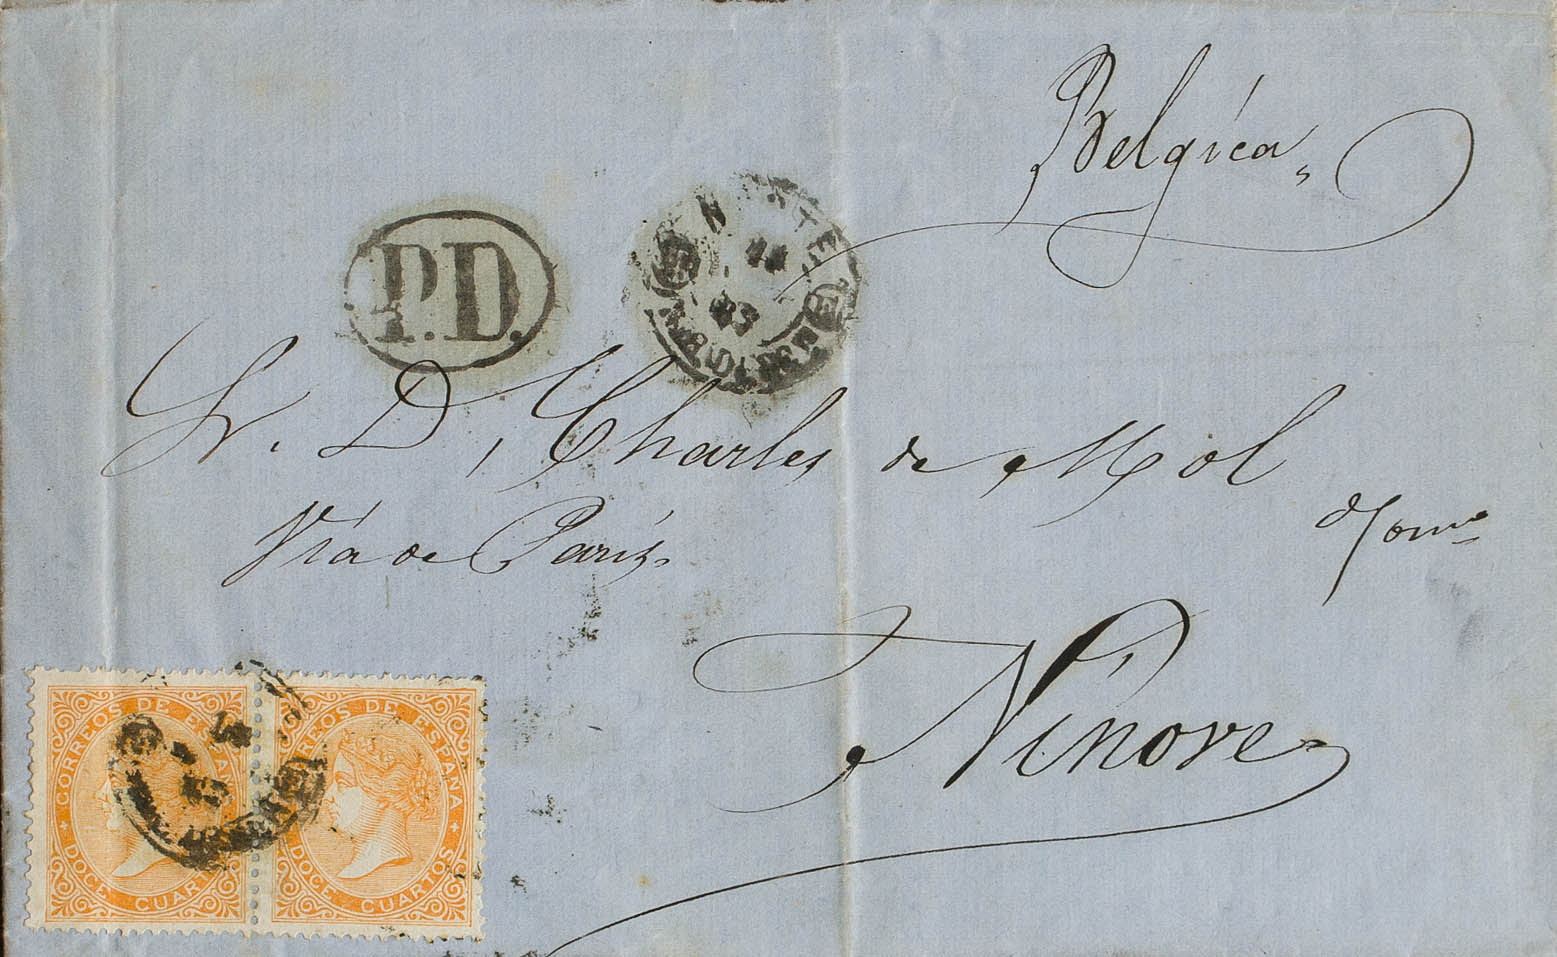 Belgica
P.D.
Sr. D, Charles de Mol
Vía de París
Ninove
CORREOS DE ESPAÑA
DOCE CUARTOS
CORREOS DE ESPAÑA
DOCE CUARTOS